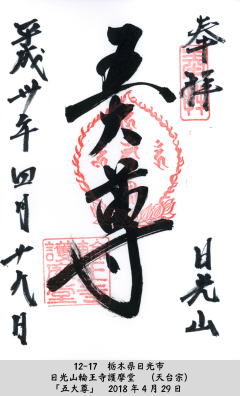 奉拝
五大尊
日光山
平成卅年四月廿九日
12-17 栃木県日光市
日光山輪王寺護摩堂 (天台宗)
「五大尊」 2018年4月29日